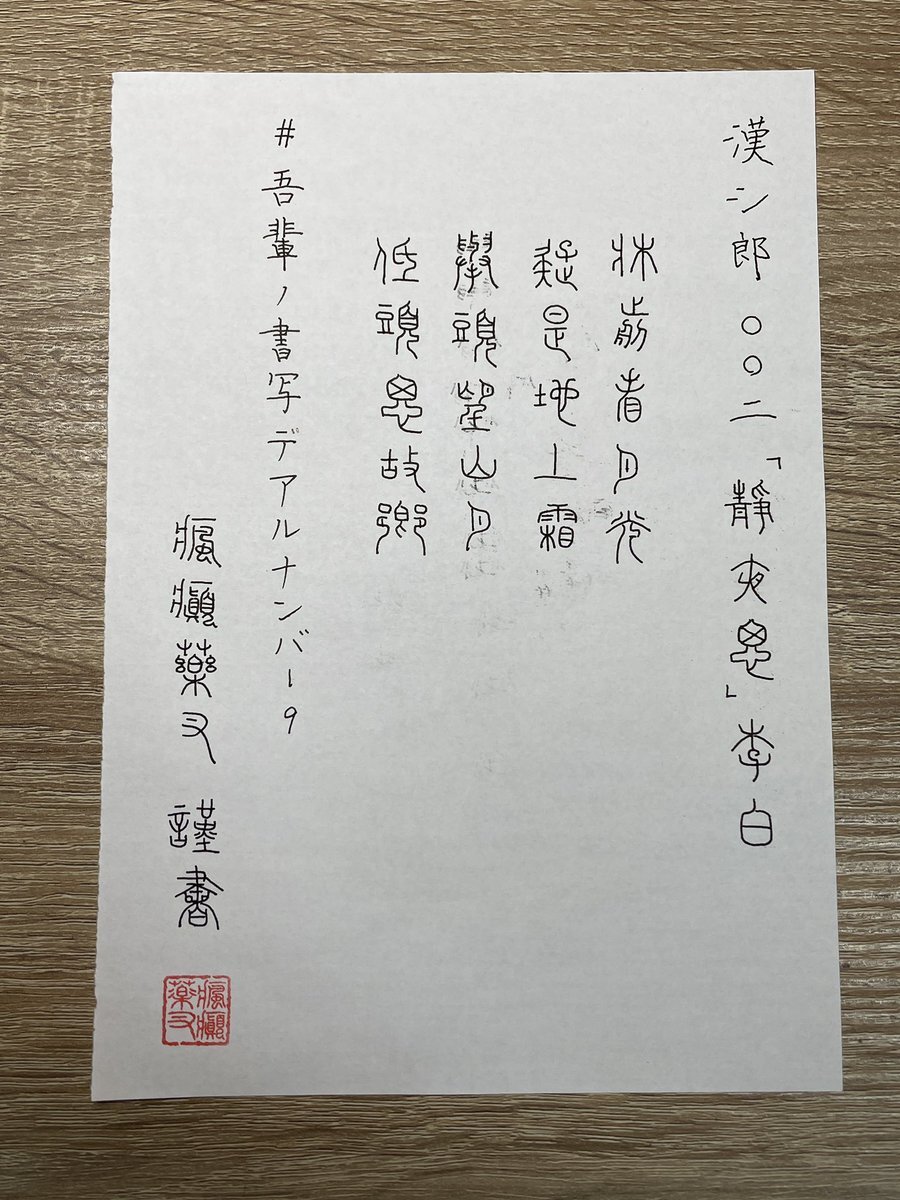 漢シ郎〇〇二「靜夜思」李白
牀前看月光
疑是地上霜
擧頭望山月
低頭思故鄉
#吾輩ノ書写デアルナンバー9
瘋癲藥叉 謹書
瘋癲藥叉